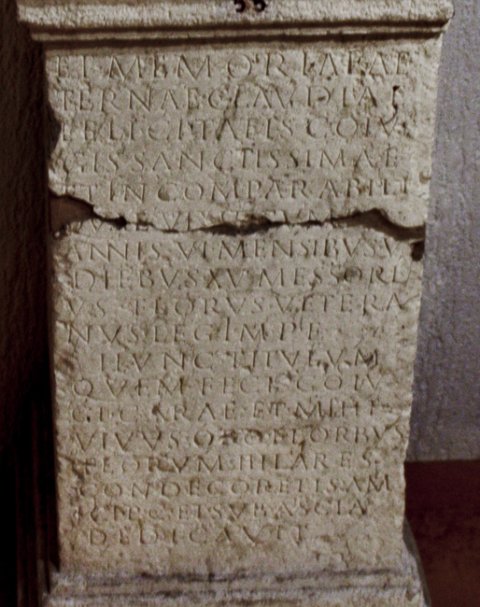 55
ET MEMORIAE AE
TERNAE CLAVDIAE
FELICITATIS COIV
GIS SANCTISSIMAE
ET INCOMPARABILI
ANNIS VI MENSIBVS V
DIEBVS XV MESSORI
VS FLORVS VETERA
NVS LEG I M P F
HVNC TITVLVM
QVEM FECI COIV
GI CARAE ET MIHI
VIVVS
HILARES
CONDECORETIS AM
ET SVB ASCIA
DEDICAVIT